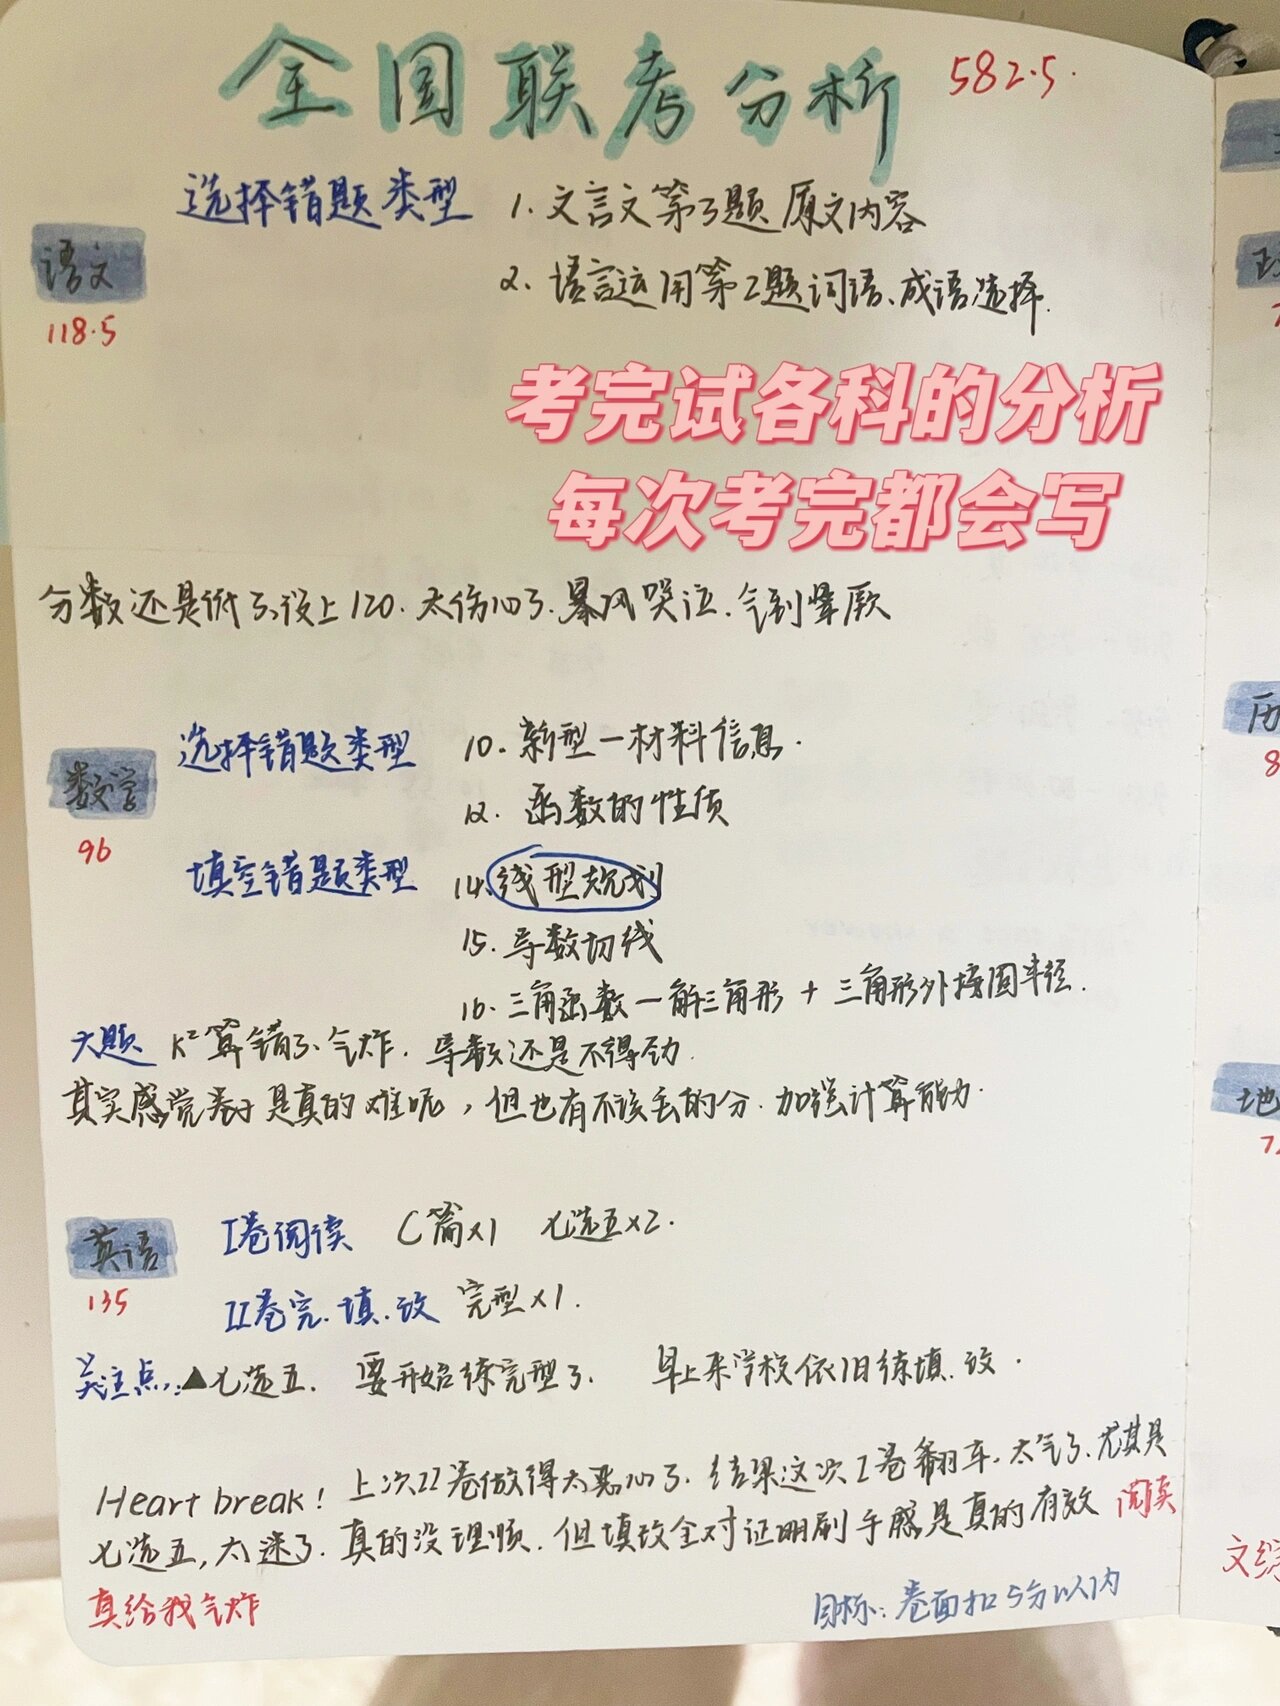 全国联考分析 582.5.
选择错题类型 1. 文言文第3题 原文内容
语文
2. 语言运用第2题词语、成语选择.
118.5
考完试各科的分析
每次考完都会写
分数还是低了,没上120. 太伤心了. 暴风哭泣. 气到晕厥
选择错题类型 10. 新型—材料信息.
数学
12. 函数的性质
96
填空错题类型 14. 线型规划
15. 导数切线
16. 三角函数—解三角形 + 三角形外接圆半径.
大题 K²算错了、气炸. 导数还是不得劲.
其实感觉卷子是真的难呢,但也有不该丢的分. 加强计算能力.
英语
I卷阅读 C篇×1 七选五×2.
135
II卷完.填.改 完型×1.
关注点: ▲七选五. 要开始练完型了. 早上来学校依旧练填.改.
Heart break! 上次II卷做得太恶心了. 结果这次I卷翻车. 太气了. 尤其是
七选五,太迷了. 真的没理顺. 但填改全对证明刷手感是真的有效 阅读
真给我气炸
目标: 卷面扣5分以内
历
8
地
7
文综